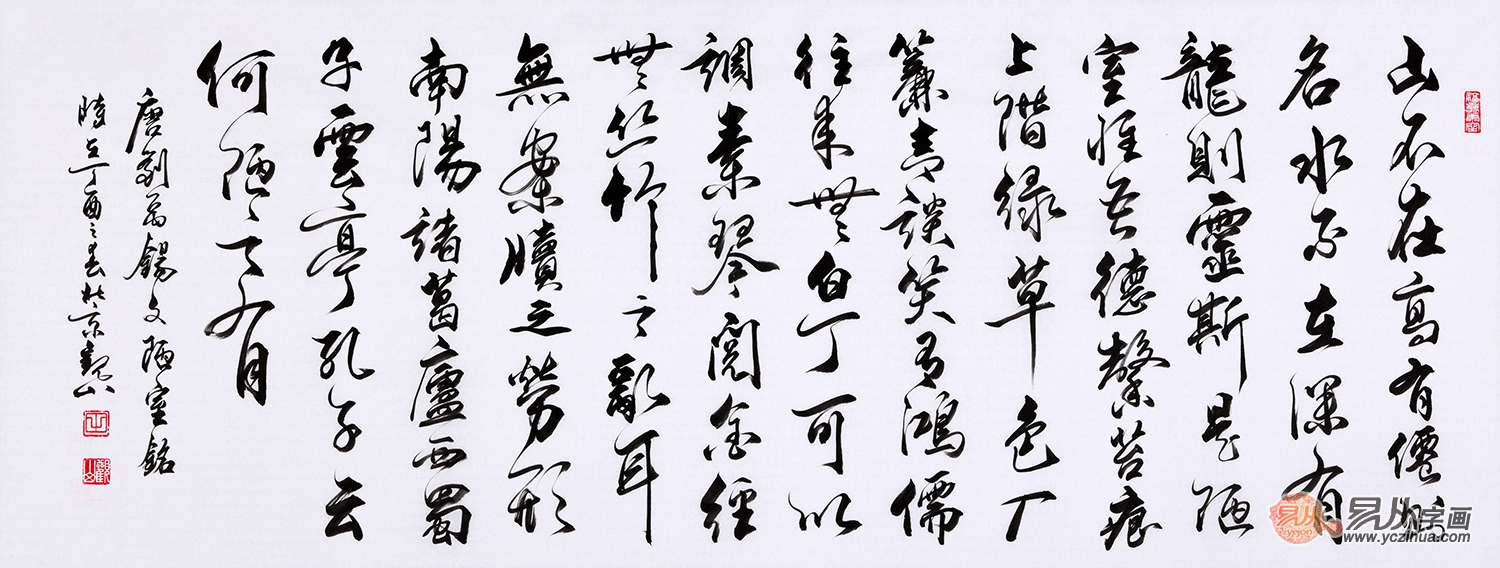 山不在高有僊則
名水不在深有
龍則靈斯是陋
室惟吾德馨苔痕
上階緑草色入
簾青談笑有鴻儒
往来無白丁可以
調素琴閱金經
無絲竹之亂耳
無案牘之勞形
南陽諸葛廬西蜀
子雲亭孔子云
何陋之有
唐劉禹錫文陋室銘
時在丁酉之春於京觀山
觀山
易从
易从字画
www.yczihua.com